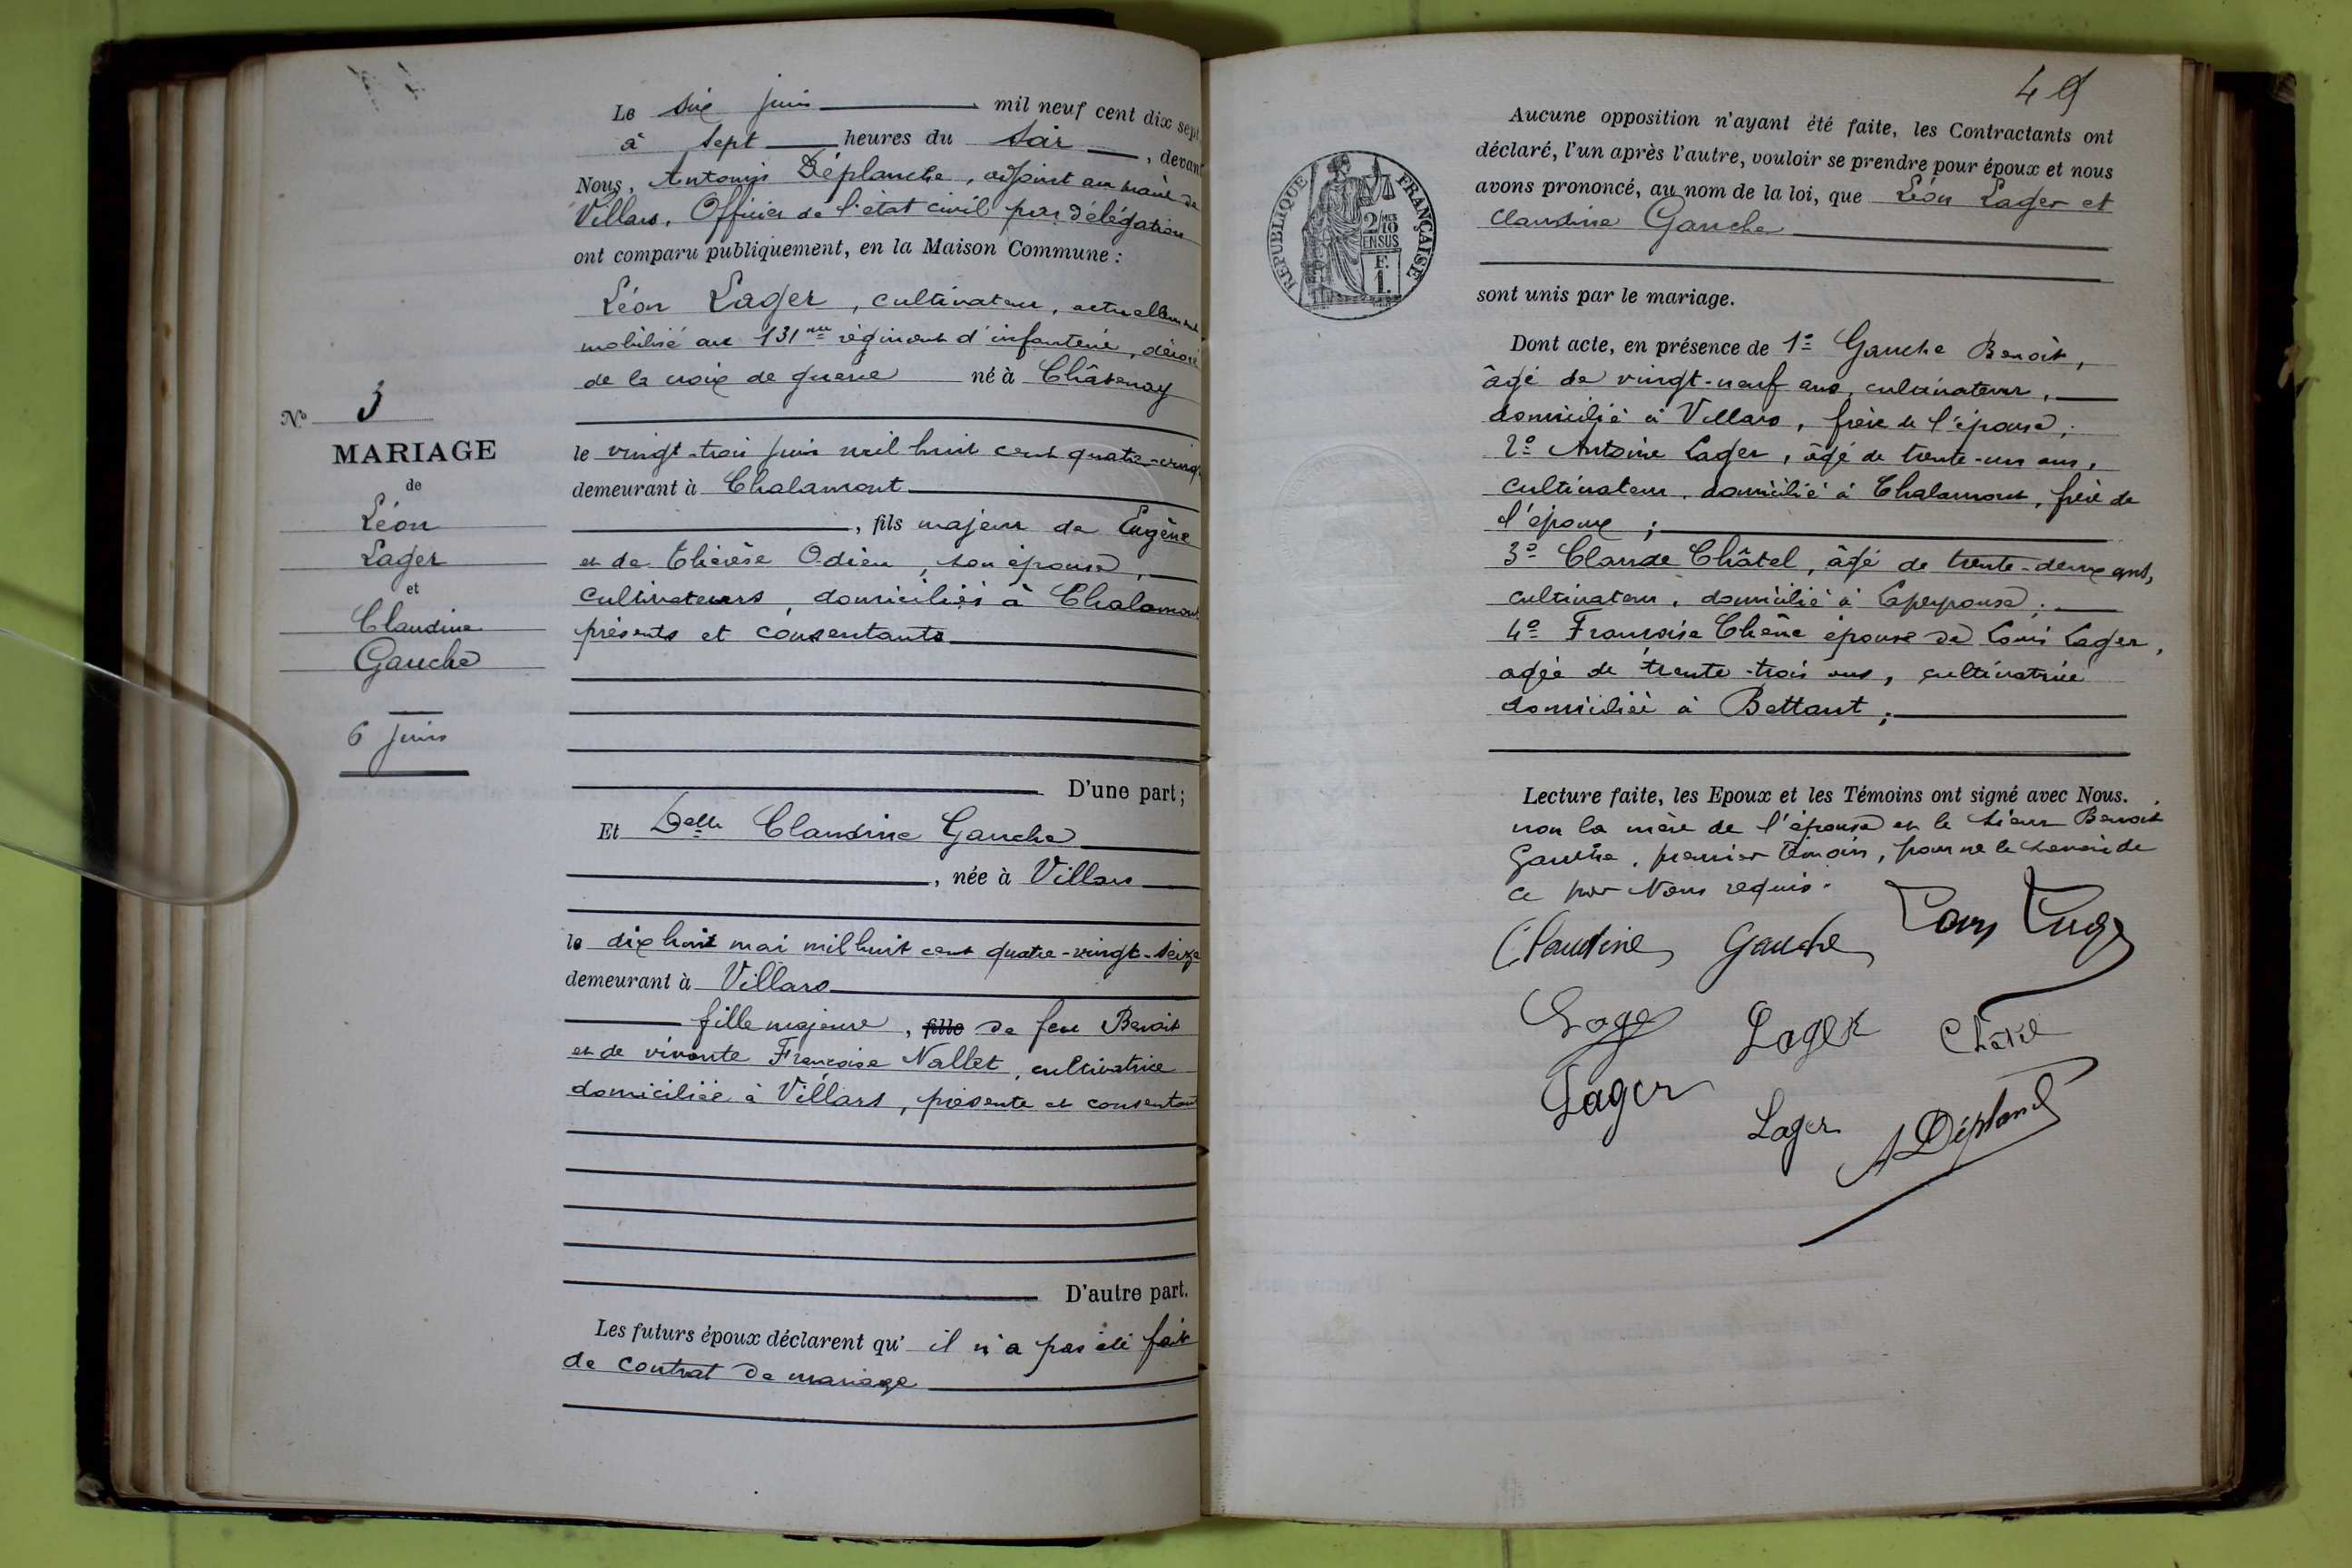 Le six juin mil neuf cent dix sept
à sept heures du soir, devant
Nous, Antonin Déplanche, adjoint au maire de
Villars, Officier de l'état civil par délégation
ont comparu publiquement, en la Maison Commune :
Léon Lager, cultivateur, actuellement
mobilisé au 131me régiment d'infanterie, décoré
de la croix de guerre né à Châtenay
le vingt-trois juin mil huit cent quatre-vingt
demeurant à Chalamont
, fils majeur de Eugène
et de Thérèse Odieu, son épouse,
cultivateurs, domiciliés à Chalamont
présents et consentants
D'une part ;
Et Delle Claudine Gauche
, née à Villars
le dix huit mai mil huit cent quatre-vingt-seize
demeurant à Villars
fille majeure, fille de feu Benoit
et de vivante Françoise Nallet, cultivatrice
domiciliée à Villars, présente et consentant
D'autre part.
Les futurs époux déclarent qu' il n'a pas été fait
de contrat de mariage
No 3
MARIAGE
de
Léon
Lager
et
Claudine
Gauche
6 juin
49
Aucune opposition n'ayant été faite, les Contractants ont
déclaré, l'un après l'autre, vouloir se prendre pour époux et nous
avons prononcé, au nom de la loi, que Léon Lager et
Claudine Gauche
sont unis par le mariage.
Dont acte, en présence de 1º Gauche Benoît,
âgé de vingt-neuf ans, cultivateur,
domicilié à Villars, frère de l'épouse ;
2º Antoine Lager, âgé de trente-un ans,
cultivateur, domicilié à Chalamont, frère de
l'époux ;
3º Claude Châtel, âgé de trente-deux ans,
cultivateur, domicilié à Lapeyrouse ;
4º Françoise Chêne épouse de Louis Lager,
agée de trente-trois ans, cultivatrice
domiciliée à Bettant ;
Lecture faite, les Epoux et les Témoins ont signé avec Nous.
non la mère de l'épouse et le sieur Benoit
Gauche, premier témoin, pour ne le savoir de
ce par Nous requis.
Claudine Gauche
Lager Lager Châtel
Lager
Lager A Déplanch
REPUBLIQUE FRANÇAISE
2/10 MES
EN SUS
F.
1.